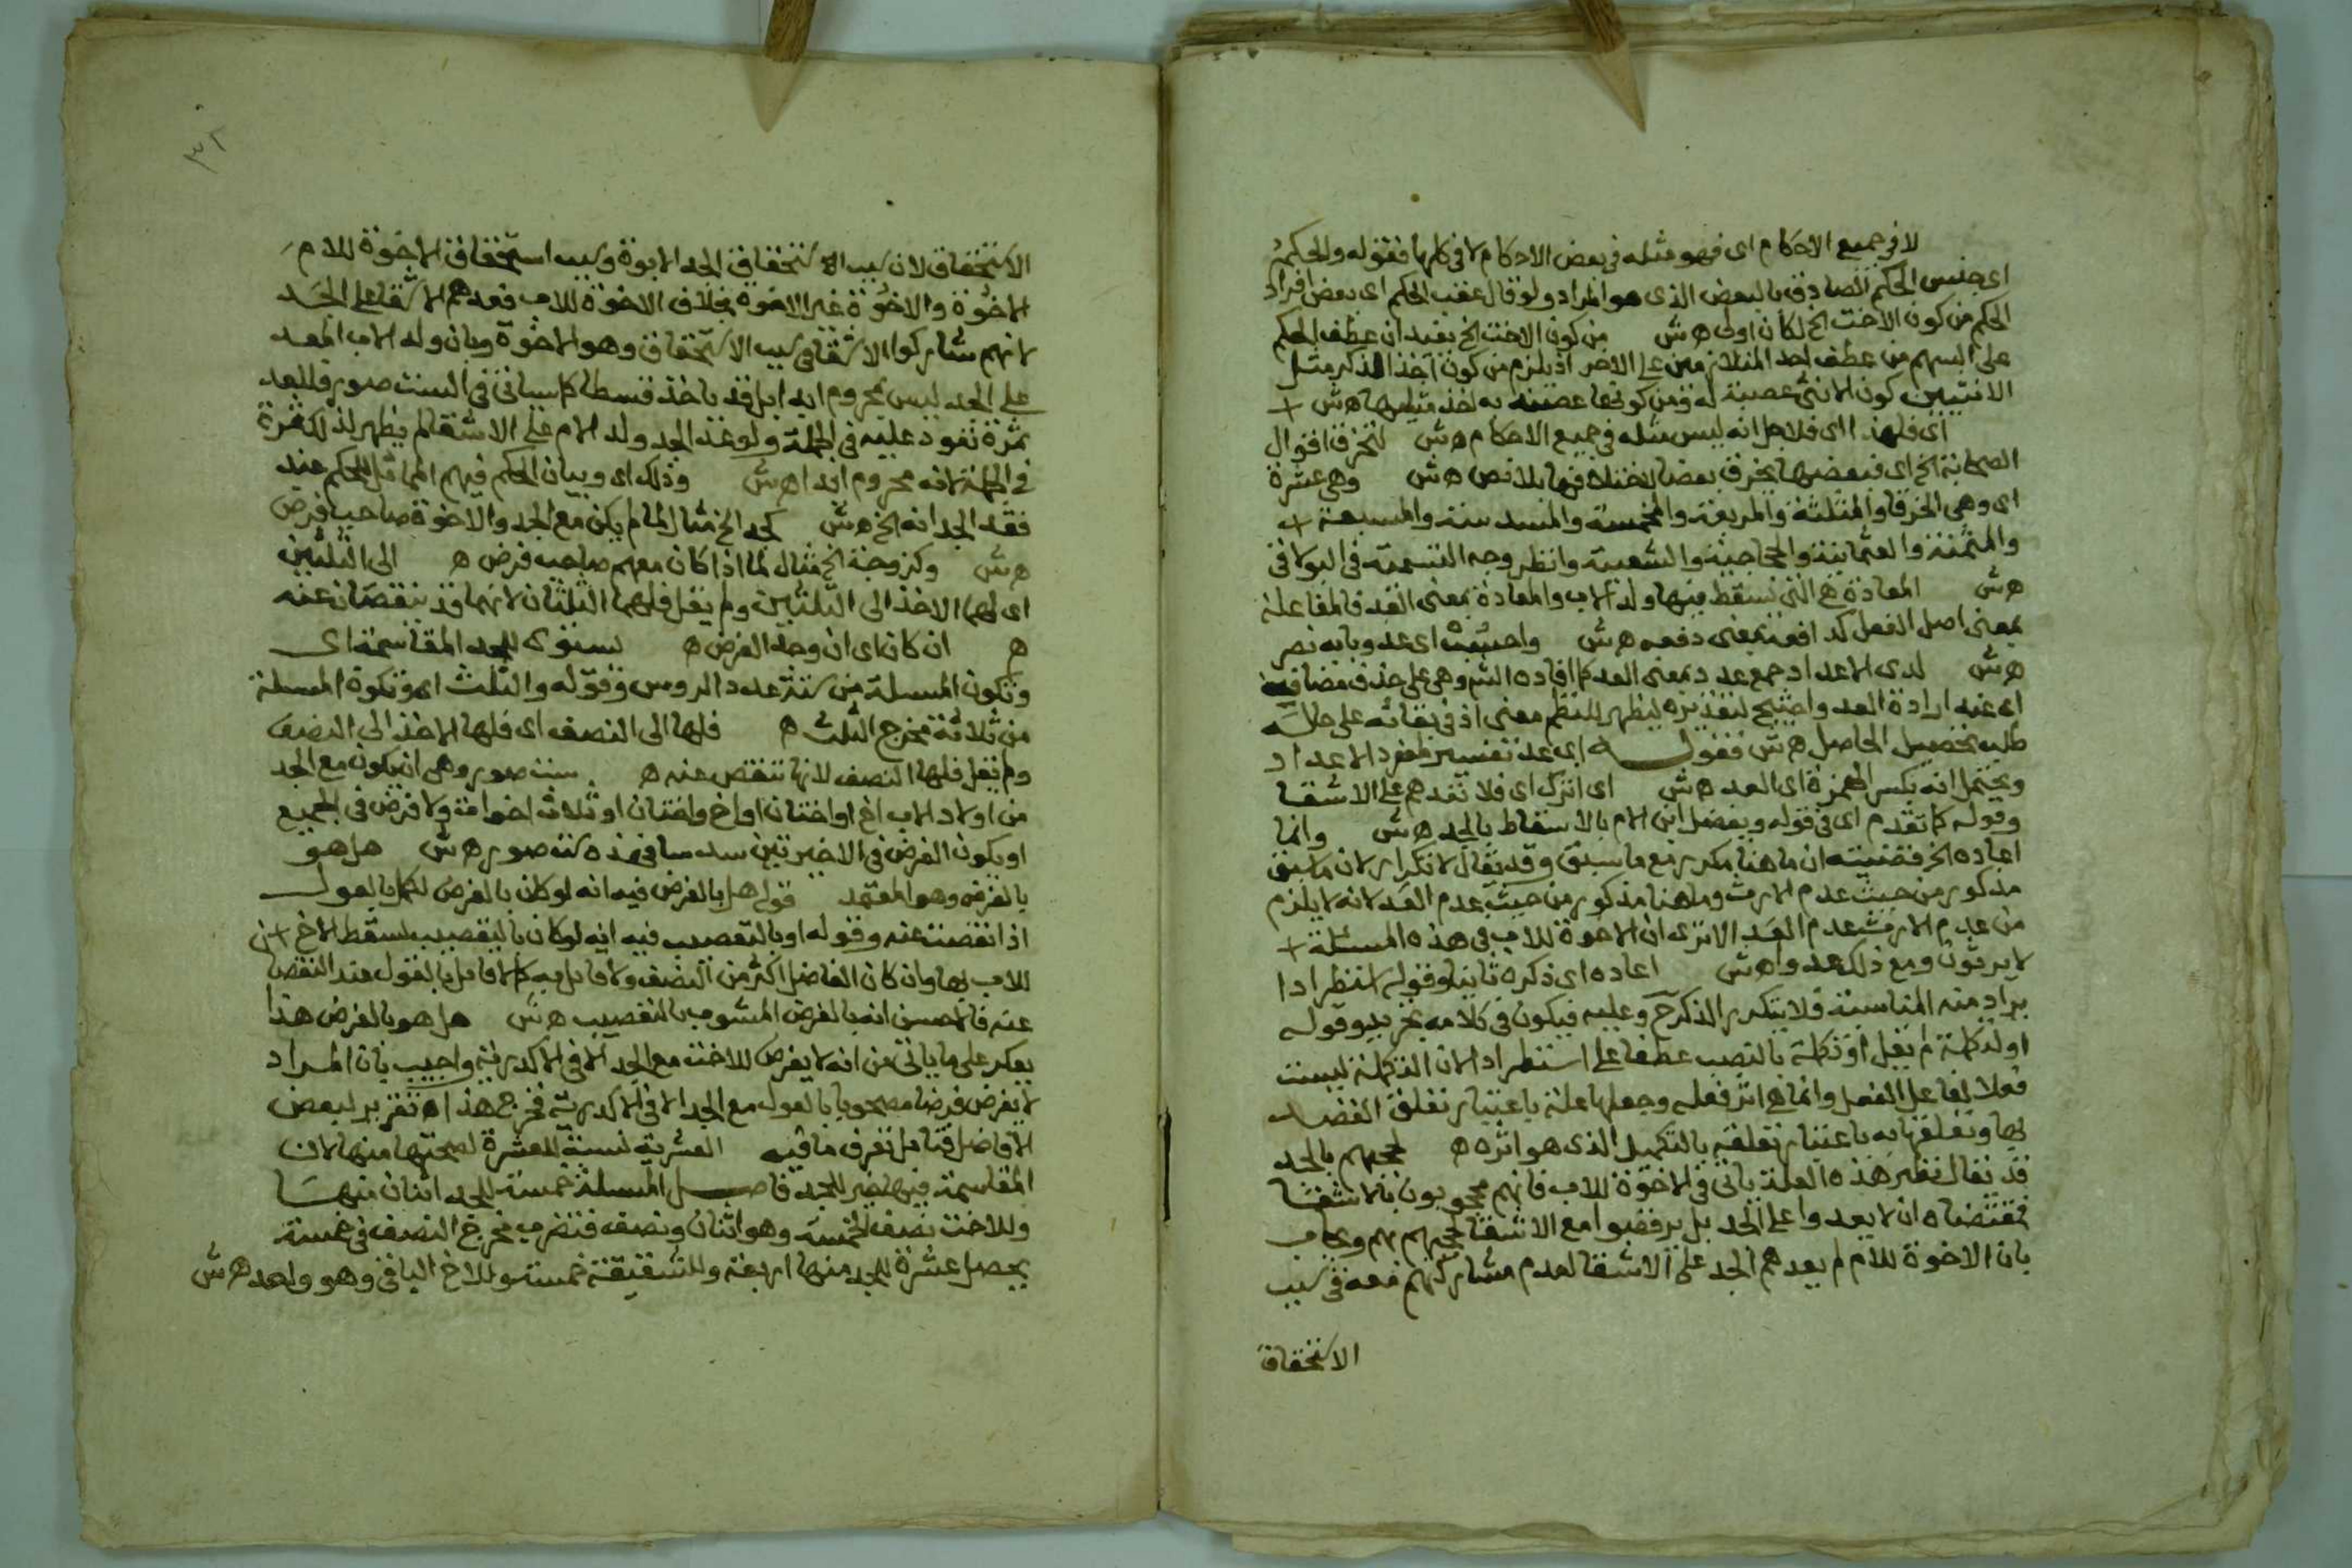 لا في جميع الاحكام اى فهو مثله فى بعض الاحكام لا فى كلها فقوله والحكم
اى جنس الحكم الصادق بالبعض الذى هو المراد ولو قال عقب الحكم اى بعض افراد
الحكم من كون الاخت الخ لكان اولى ه ش من كون الاخت الخ يفيد ان عطف الحكم
على السهم من عطف احد المتلازمين على الاخر اذ يلزم من كون اخذ الذكر مثل
الانثيين كون الانثى عصبة له ومن كونها عصبته به اخذ مثليها ه ش
اى فلهذا اى فلاجل انه ليس مثله فى جميع الاحكام ه ش لتخرق اقوال
الصحابة الخ اى فبعضها يخرق بعضا لاختلافها بلا نص ه ش وهى عشرة
اى وهى الخرقا والمثلثة والمربعة والمخمسة والمسدسة والمسبعة
والمثمنة والعثمانية والحجاجية والشعبية وانظر وجه التسمية فى البولاقى
ه ش المعادة هى التى يسقط فيها ولد الاب والمعادة بمعنى العد فالمفاعلة
بمعنى اصل الفعل كدافعه بمعنى دفعه ه ش واحسب اى عد وبابه نصر
ه ش لدى الاعداد جمع عدد بمعنى العد كما افاده الش وهى على حذف مضاف
اى عند ارادة العد واحتيج لتقديره ليظهر للنظم معنى اذ فى بقائه على حاله
طلب تحصيل الحاصل ه ش فقوله اى عد تفسير لمفرد الاعداد
ويحتمل انه بكسر الهمزة اى العد ه ش اى اترك اى فلا تعدهم على الاشقا
وقوله كما تقدم اى فى قوله ويفضل ابن الام بالاسقاط بالجد ه ش وانما
اعاده الخ فقضيته ان ما هنا مكرر مع ما سبق وقد يقال لا تكرار لان ما سبق
مذكور من حيث عدم الارث وما هنا مذكور من حيث عدم العد لانه لا يلزم
من عدم الارث عدم العد الا ترى ان الاخوة للاب فى هذه المسئلة
لا يرثون ومع ذلك عدوا ه ش اعاده اى ذكره ثانيا وقوله استطرادا
يراد منه المناسبة فلا يتكرر الذكر ح وعليه فيكون فى كلامه تجريد وقوله
او لتكملة لم يقل او تكملة بالنصب عطفا على استطرادا لان التكملة ليست
فعلا لفاعل الفعل وانما هى اثر فعله وجعلها علة باعتبار تعلق القصد
بها وتعلقها به باعتبار تعلقه بالتكميل الذى هو اثره ه لحجبهم بالجد
قد يقال نظير هذه العلة ياتى فى الاخوة للاب فانهم محجوبون بالاشقا
فمقتضاه ان لا يعدوا على الجد بل يرفضوا مع الاشقا لحجبهم بهم ويجاب
بان الاخوة للام لم يعدهم الجد على الاشقا لعدم مشاركتهم معه فى سبب
الاستحقاق
٣٢
الاستحقاق لان سبب استحقاق الجد الابوة وسبب استحقاق الاخوة للام
الاخوة والاخوة غير الابوة بخلاف الاخوة للاب فعدهم الاشقا على الجد
لانهم شاركوا الاشقا فى سبب الاستحقاق وهو الاخوة وبان ولد الاب المعد
على الجد ليس بمحروم ابدا بل قد ياخذ قسطا كما سياتى فى الست صور فللعد
ثمرة تعود عليه فى الجملة ولو عد الجد ولد الام على الاشقا لم يظهر لذلك ثمرة
فى الجملة لانه محروم ابدا ه ش وذلك اى وبيان الحكم فيهم المماثل للحكم عند
فقد الجد انه الخ ه ش كجد الخ مثال لما لم يكن مع الجد والاخوة صاحب فرض
ه ش وكزوجة الخ مثال لما اذا كان معهم صاحب فرض ه الى الثلثين
اى لهما الاخذ الى الثلثين ولم يقل فلهما الثلثان لانهما قد ينقصان عنه
ه ان كان اى ان وجد الفرض ه يستوى للجد المقاسمة اى
وتكون المسئلة من ستة عدد الروس وقوله والثلث اى وتكون المسئلة
من ثلاثة مخرج الثلث ه فلها الى النصف اى فلها الاخذ الى النصف
ولم يقل فلها النصف لانها تنقص عنه ه ست صور وهى ان يكون مع الجد
من اولاد الاب اخ او اختان او اخ واختان او ثلاث اخوات ولا فرض فى الجميع
او يكون الفرض فى الاخيرتين سدسا فهذه ستة صور ه ش هل هو
بالفرض وهو المعتمد قوله هل بالفرض فيه انه لو كان بالفرض لكمل بالعول
اذا نقصت عنه وقوله او بالتعصيب فيه انه لو كان بالتعصيب لسقط الاخ
للاب بها وان كان الفاضل اكثر من النصف ولا قايل به كما لا قايل بالعول عند النقص
عنه فالاحسن انه بالفرض المشوب بالتعصيب ه ش هل هو بالفرض هذا
يعكر على ما ياتى من انه لا يفرض للاخت مع الجد الا فى الاكدرية واجيب بان المراد
لا يفرض فرضا مصحوبا بالعول مع الجد الا فى الاكدرية فخرج هذا اه تقرير لبعض
الافاضل فتامل تعرف ما فيه العشرية نسبة للعشرة لصحتها منها لان
المقاسمة فيها خير للجد فاصل المسئلة خمسة للجد اثنان منها
وللاخت نصف الخمسة وهو اثنان ونصف فتضرب مخرج النصف فى خمسة
يحصل عشرة للجد منها اربعة وللشقيقة خمسة وللاخ الباقى وهو واحد ه ش